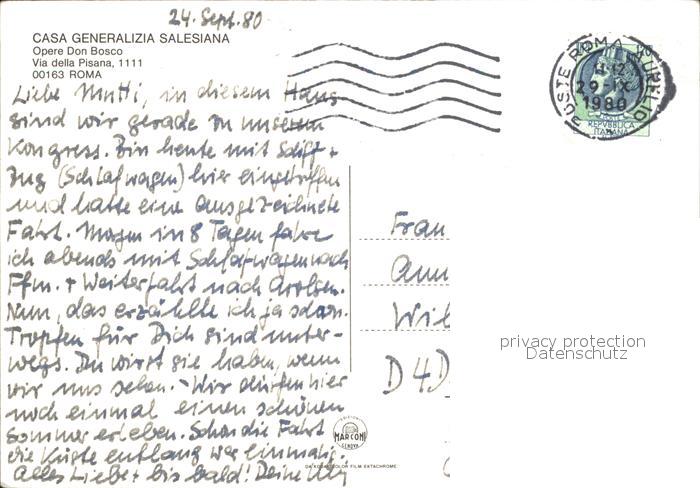 24. Sept. 80
CASA GENERALIZIA SALESIANA
Opere Don Bosco
Via della Pisana, 1111
00163 ROMA
Liebe Mutti, in diesem Haus
sind wir gerade zu unserem
Kongress. Bin heute mit Schiff +
Zug (Schlafwagen) hier eingetroffen
und hatte eine ausgezeichnete
Fahrt. Morgen in 8 Tagen fahre
ich abends mit Schlafwagen nach
Ffm. + Weiterfahrt nach Arolsen.
Nun, das erzählte ich ja schon.
Tropfen für Dich sind unter-
wegs. Du wirst sie haben, wenn
wir uns sehen. - Wir dürfen hier
noch einmal einen schönen
Sommer erleben. Schon die Fahrt
die Küste entlang war einmalig.
Alles Liebe + bis bald! Deine
POSTE ROMA AURELIO
29-IX
1980
REPVBBLICA
ITALIANA
Frau
D4
privacy protection
Datenschutz
MARCONI
GENOVA
DA KODAK COLOR FILM EXTACHROME